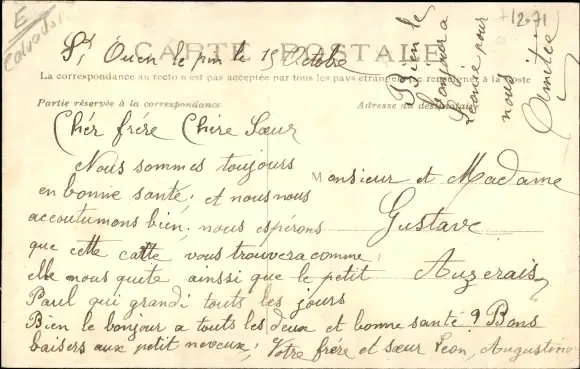 E
Calvados
+12.71
CARTE POSTALE
St Ouen le pin le 15 Octobre
La correspondance au recto n'est pas acceptée par tous les pays étrangers. Se renseigner à la poste
Partie réservée à la correspondance
Adresse du destinataire
Bien le
bonjour a
Leonie pour
nous
Amitiée
Chér frére Chére Sœur
Nous sommes toujours
en bonne santé; et nous nous
accoutumons bien; nous espérons
que cette catte vous trouvera comme
elle nous quite ainssi que le petit
Paul qui grandi touts les jours
Bien le bonjour a touts les deux et bonne santé? Bons
baisers aux petit neveux; Votre frére et sœur Leon, Augustine
Monsieur et Madame
Gustave
Auzerais